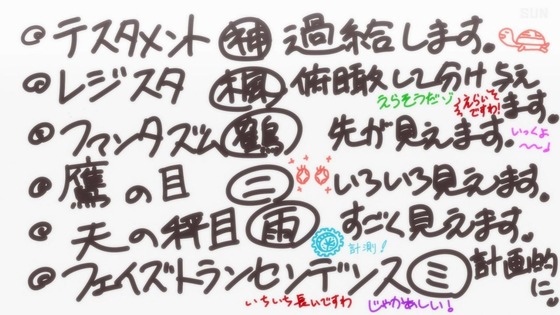 SUN
テスタメント 神 過給します。
レジスタ 楓 俯瞰して分け与えます。
えらそうだゾ
えらいんですわ!
ファンタズム 鶴 先が見えます。
いっくよ〜〜♪
鷹の目 二 いろいろ見えます。
天の秤目 雨 すごく見えます。
計測!
フェイズトランセンデンス ミ 計画的に。
いちいち長いですわ
じゃかあしい!